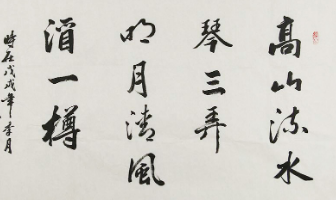 高山流水
琴三弄
明月清風
酒一樽
時在戊戌年季月